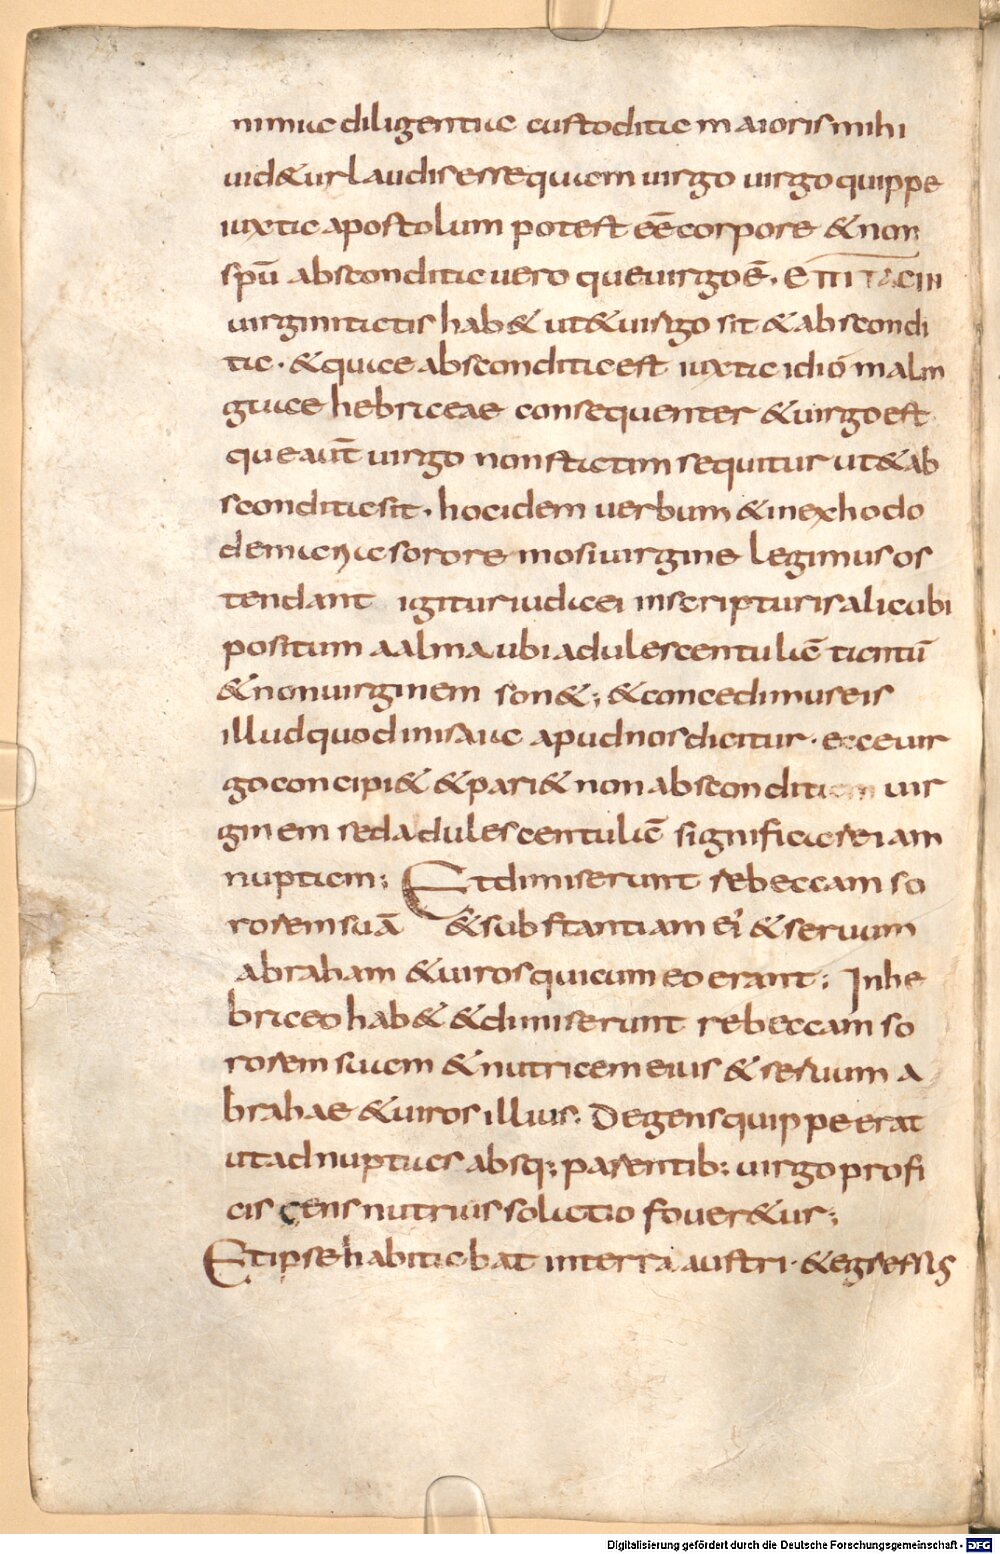 nimia diligentia custodita maioris mihi
uid&ur laudis esse quam uirgo uirgo quippe
iuxta apostolum potest eē corpore & non
spū abscondita uero que uirgo ē. E
uirginitatis hab& ut & uirgo sit & abscondi
ta. & quae abscondita est iuxta idioma lin
guae hebraeae consequenter & uirgo est
que aūt uirgo non statim sequitur ut & ab
scondita sit. hoc idem uerbum & in exhodo
de maria sorore mosi uirgine legimus os
tendant igitur iudaei in scripturis alicubi
positum aalma ubi adulescentulā tantū
& non uirginem son&; & concedimus eis
illud quod in isaia apud nos dicitur. ecce uir
go concipi& & pari& non absconditam uir
ginem sed adulescentulā significase iam
nuptam; Et dimiserunt rebeccam so
rorem suā & substantiam ei & seruum
abraham & uiros qui cum eo erant; In he
braeo hab& & dimiserunt rebeccam so
rorem suam & nutricem eius & seruum a
brahae & uiros illius. Degens quippe erat
ut ad nuptias absq; parentib; uirgo profi
ciscens nutricis solatio fouer&ur;
Et ipse habitabat in terra austri. & egressus
Digitalisierung gefördert durch die Deutsche Forschungsgemeinschaft - DFG